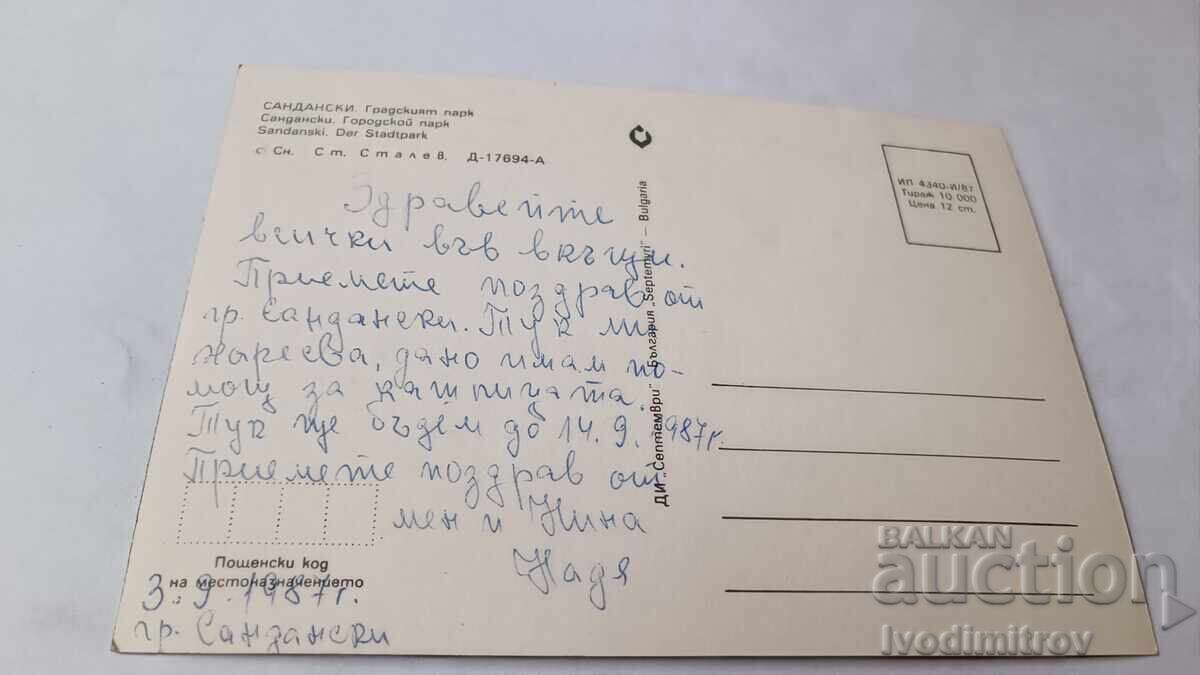 САНДАНСКИ. Градският парк
Сандански. Городской парк
Sandanski. Der Stadtpark
© Сн. Ст. Сталев. Д-17694-А
Здравейте
всички във вкъщи.
Приемете поздрав от
гр. Сандански. Тук ми
харесва, дано имам по-
мощ за кашлицата.
Тук ще бъдем до 14.9.1987г.
Приемете поздрав от
мен и Нина
Надя
Пощенски код
на местоназначението
3.9.1987г.
гр. Сандански
ДИ „Септември" – България „Septemvri" – Bulgaria
ИП 4340-И/87
Тираж 10 000
Цена 12 ст.
BALKAN
auction
Ivodimitrov